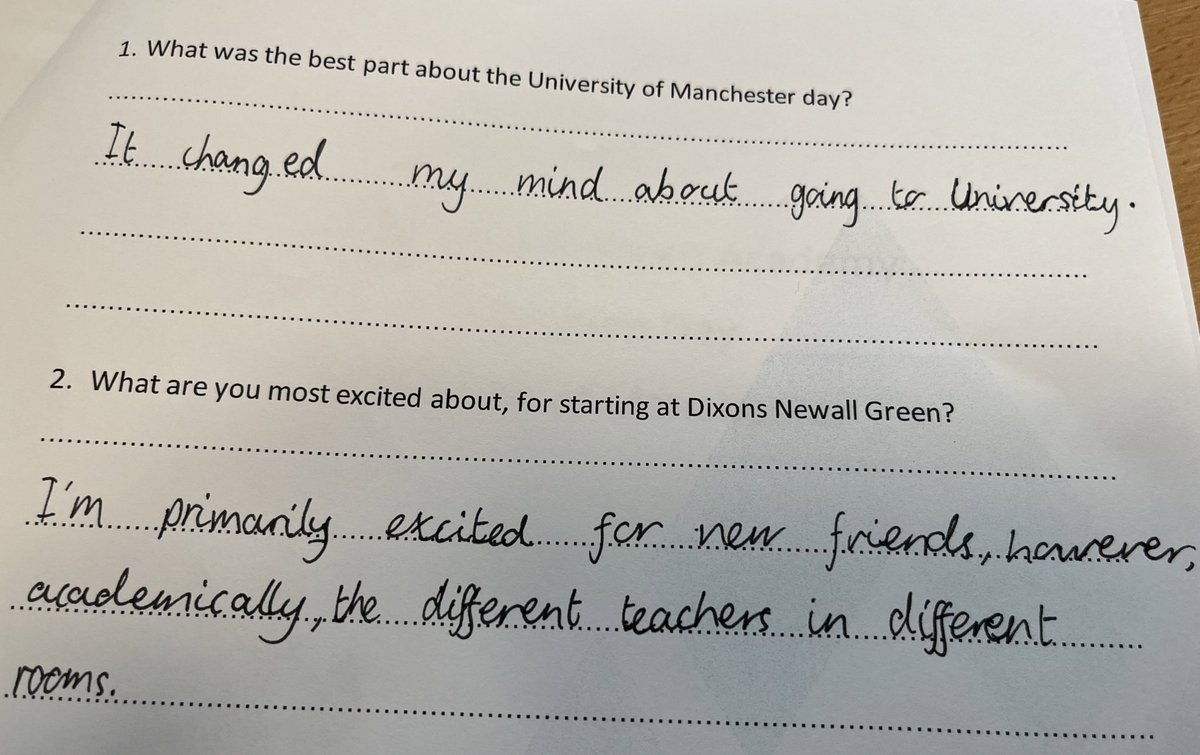 1. What was the best part about the University of Manchester day?
It changed my mind about going to University.
2. What are you most excited about, for starting at Dixons Newall Green?
I'm primarily excited for new friends, however,
academically, the different teachers in different
rooms.